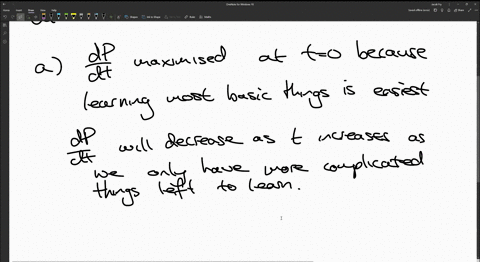 a) dP/dt maximised at t=0 because
learning most basic things is easiest
dP/dt will decrease as t increases as
we only have more complicated
things left to learn.